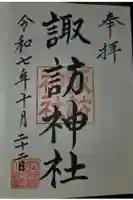 奉拝
諏訪神社
令和七年十月二十二日